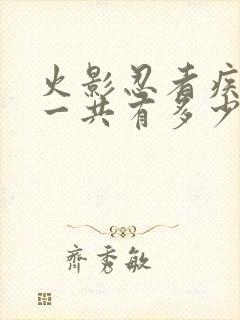 火影忍者疾
一共有多少
齊秀敏